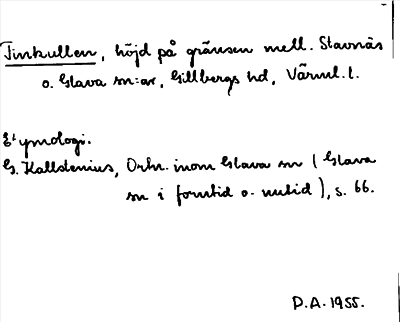 Tinkullen, höjd på gränsen mell. Stavnäs
o. Glava sn:ar, Gillbergs hd, Värml. l.
Etymologi.
G. Kallstenius, Ortn. inom Glava sn (Glava
sn i forntid o. nutid), s. 66.
P.A. 1955.